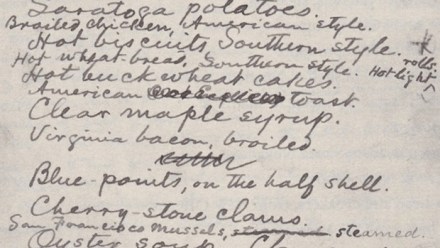 Saratoga potatoes.
Broiled chicken, American style.
Hot biscuits, Southern style.
Hot wheat-bread, Southern style. Hot light rolls.
Hot buckwheat cakes.
American toast.
Clear maple syrup.
Virginia bacon, broiled.
Blue-points, on the half shell.
Cherry-stone clams.
San Francisco mussels, steamed.
Oyster soup.